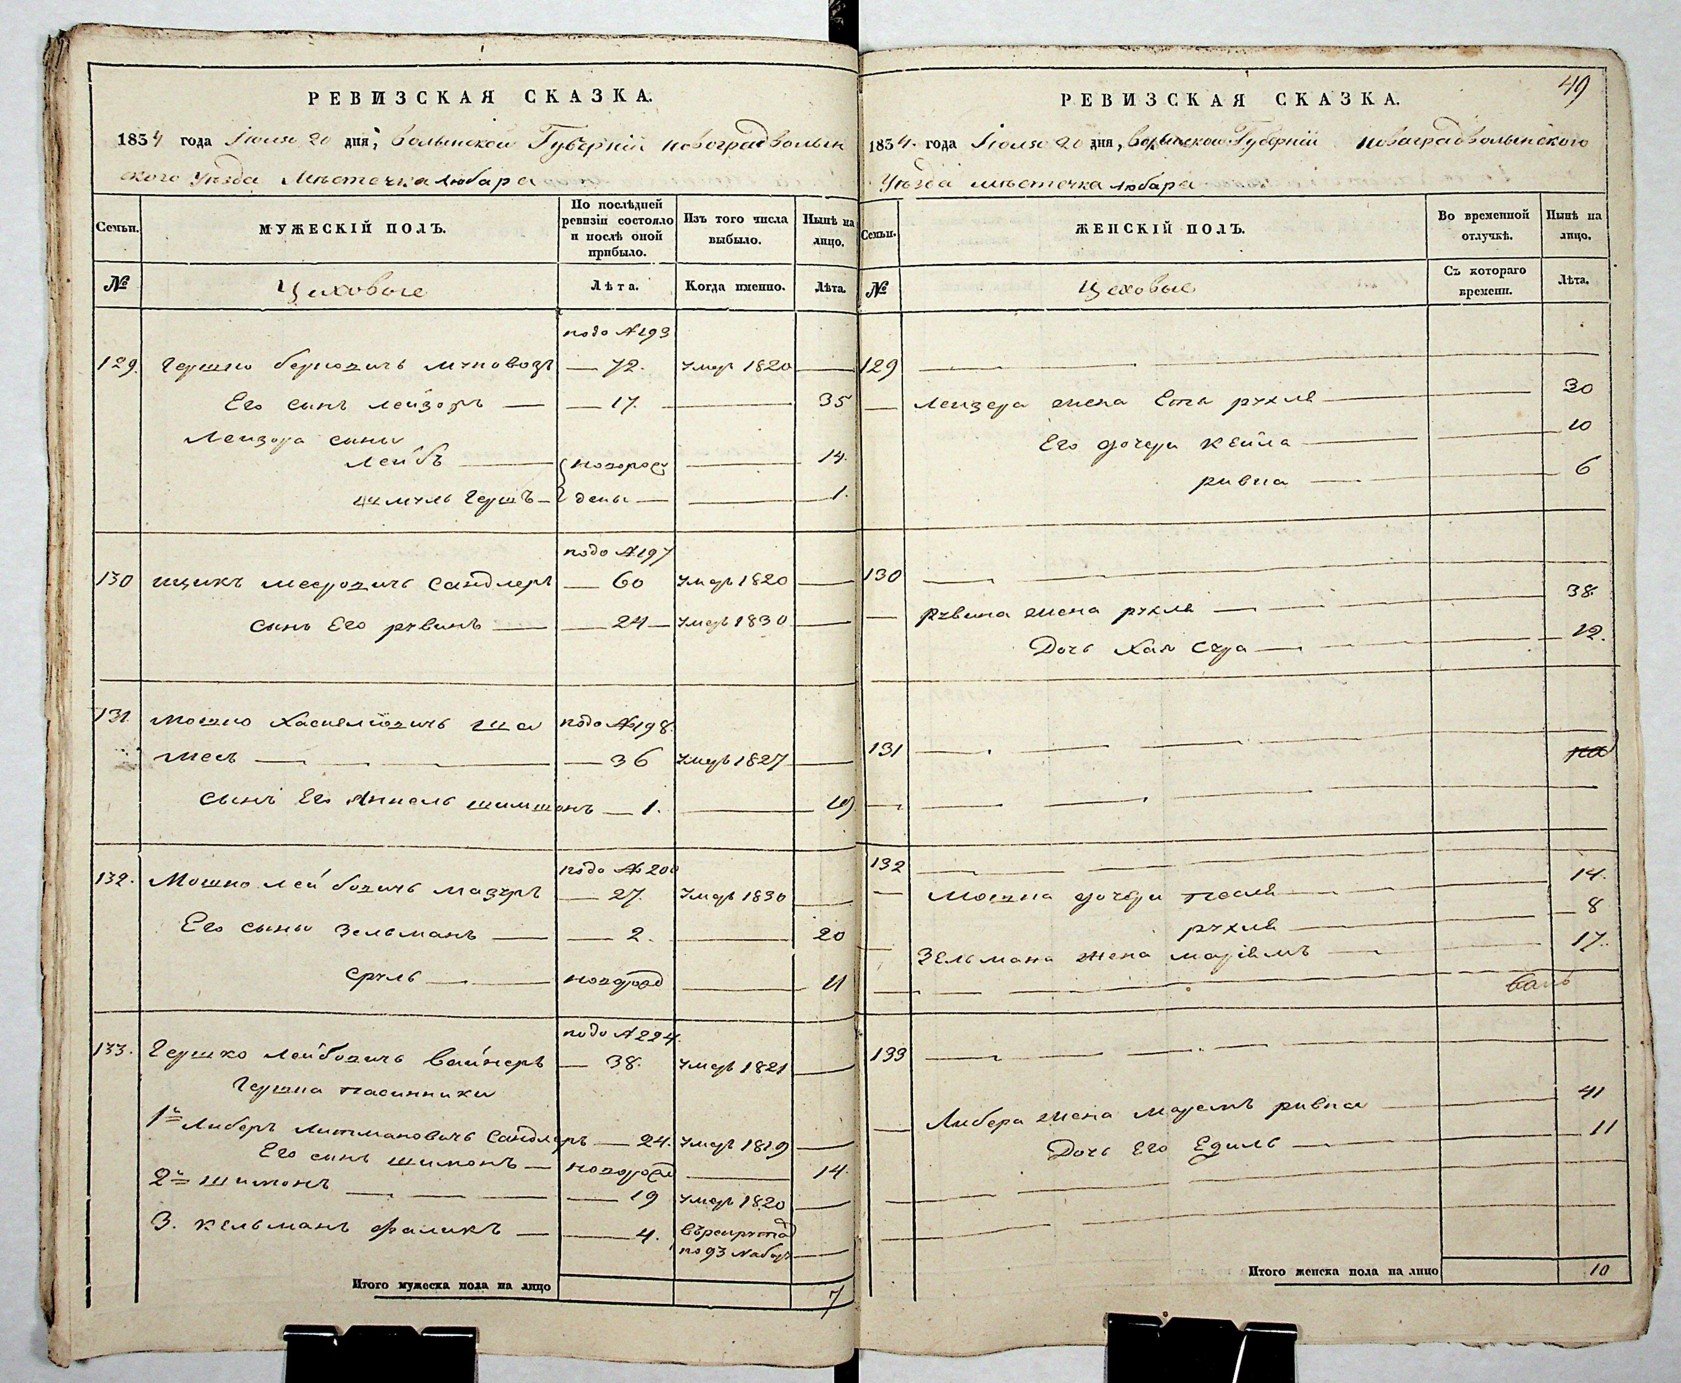 РЕВИЗСКАЯ СКАЗКА.
1834 года Июля 20 дня, Волынской Губернiи Новоградволын
ского Уѣзда Мѣстечка Любара
Семьи.
МУЖЕСКIЙ ПОЛЪ.
По послѣдней ревизiи состояло и послѣ оной прибыло.
Изъ того числа выбыло.
Нынѣ на лицо.
№
Цеховые
Лѣта.
Когда именно.
Лѣта.
подъ №193
129. Гершко Берковичь 72. умеръ 1820
Его сынъ Лейзоръ 17. 35
Лейзора сыны
Лейбъ новорож 14.
Шмуль Гершъ дены 1.
подъ №197
130 Ицикъ Мееровичь Сандлеръ 60 умеръ 1820
Сынъ Его Рувинъ 24 умеръ 1830
131. Мошко Хаскелiовичь Ша подъ №198.
месъ 36 умеръ 1827
Сынъ Его Анкель Шимшонъ 1. 19
подъ №200
132. Мошко Лейбовичь Мазуръ 27. умеръ 1830
Его сыны Зельманъ 2. 20
Сруль новорож 11
подъ №224.
133. Гершко Лейбовичь Вайнеръ 38. умеръ 1821
Гершка пасинники
1й Либеръ Литмановичь Сандлеръ 24. умеръ 1819
Его сынъ Шимонъ новорож 14.
2й Шимонъ 19 умеръ 1820
3. Кельманъ Фаликъ 4. въ рекруты
по 93 набору
Итого мужеска пола на лицо 7
49
РЕВИЗСКАЯ СКАЗКА.
1834. года Июля 20 дня, Волынской Губернiи Новоградволынского
Уѣзда Мѣстечка Любара
Семьи.
ЖЕНСКIЙ ПОЛЪ.
Во временной отлучкѣ.
Нынѣ на лицо.
№
Цеховые
Съ котораго времени.
Лѣта.
129
Лейзера жена Ета Рухля 30
Его дочери Кейла 10
Ривка 6
130
Рувина жена Рухля 38.
Дочь Хая Сура 12.
131
132
Мошка дочери Песля 14.
Рухля 8
Зельмана жена Марiямъ 17.
133
Либера жена Марьемъ Ривка 41
Дочь Его Едиль 11
Итого женска пола на лицо 10